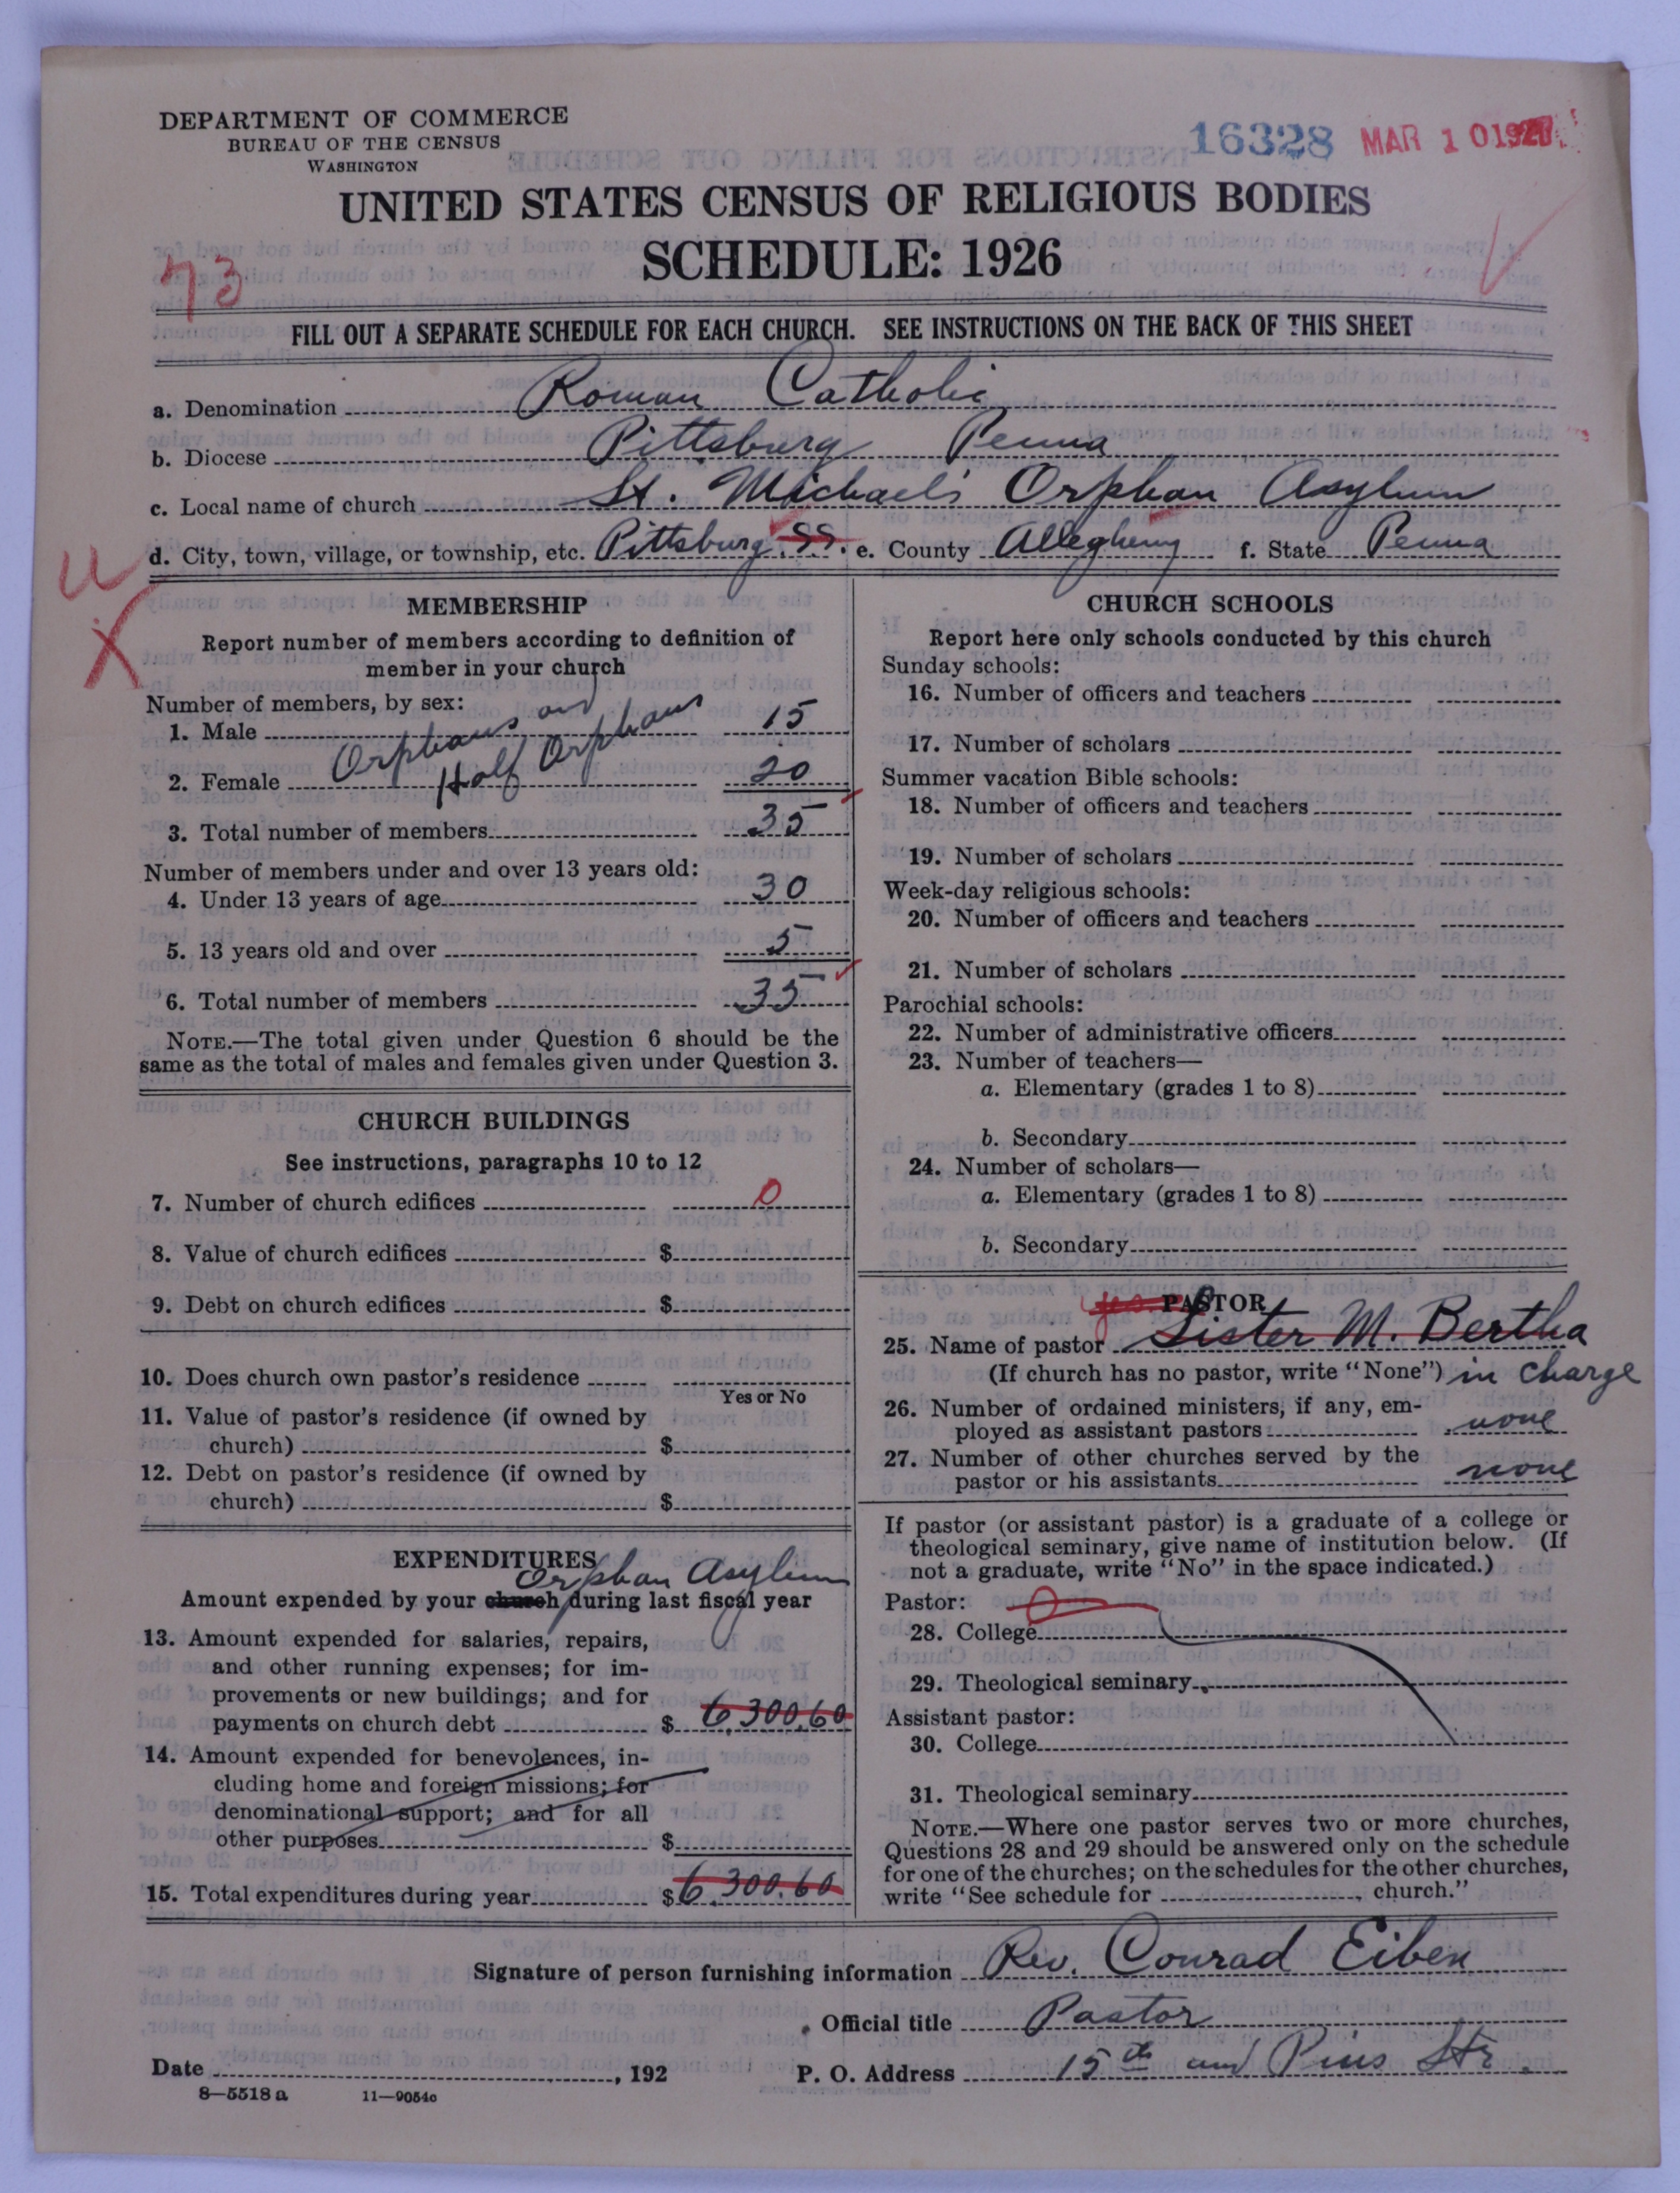 DEPARTMENT OF COMMERCE
BUREAU OF THE CENSUS
WASHINGTON
16328 MAR 10 1927
UNITED STATES CENSUS OF RELIGIOUS BODIES
SCHEDULE: 1926
73
FILL OUT A SEPARATE SCHEDULE FOR EACH CHURCH. SEE INSTRUCTIONS ON THE BACK OF THIS SHEET
a. Denomination Roman Catholic
b. Diocese Pittsburg Penna
c. Local name of church St. Michael's Orphan Asylum
d. City, town, village, or township, etc. Pittsburg. SS. e. County Allegheny f. State Penna
U
X
MEMBERSHIP
Report number of members according to definition of
member in your church
Number of members, by sex:
1. Male 15
Orphans and
Half Orphans
2. Female 20
3. Total number of members 35
Number of members under and over 13 years old:
4. Under 13 years of age 30
5. 13 years old and over 5
6. Total number of members 35
NOTE.—The total given under Question 6 should be the
same as the total of males and females given under Question 3.
CHURCH BUILDINGS
See instructions, paragraphs 10 to 12
7. Number of church edifices 0
8. Value of church edifices $
9. Debt on church edifices $
10. Does church own pastor's residence
Yes or No
11. Value of pastor's residence (if owned by
church) $
12. Debt on pastor's residence (if owned by
church) $
EXPENDITURES
Orphan Asylum
Amount expended by your church during last fiscal year
13. Amount expended for salaries, repairs,
and other running expenses; for im-
provements or new buildings; and for
payments on church debt $ 6,300.60
14. Amount expended for benevolences, in-
cluding home and foreign missions; for
denominational support; and for all
other purposes $
15. Total expenditures during year $ 6,300.60
CHURCH SCHOOLS
Report here only schools conducted by this church
Sunday schools:
16. Number of officers and teachers
17. Number of scholars
Summer vacation Bible schools:
18. Number of officers and teachers
19. Number of scholars
Week-day religious schools:
20. Number of officers and teachers
21. Number of scholars
Parochial schools:
22. Number of administrative officers
23. Number of teachers—
a. Elementary (grades 1 to 8)
b. Secondary
24. Number of scholars—
a. Elementary (grades 1 to 8)
b. Secondary
PASTOR
25. Name of pastor Sister M. Bertha
(If church has no pastor, write "None") in charge
26. Number of ordained ministers, if any, em-
ployed as assistant pastors none
27. Number of other churches served by the
pastor or his assistants none
If pastor (or assistant pastor) is a graduate of a college or
theological seminary, give name of institution below. (If
not a graduate, write "No" in the space indicated.)
Pastor:
28. College
29. Theological seminary
Assistant pastor:
30. College
31. Theological seminary
NOTE.—Where one pastor serves two or more churches,
Questions 28 and 29 should be answered only on the schedule
for one of the churches; on the schedules for the other churches,
write "See schedule for church."
Signature of person furnishing information Rev. Conrad Eiben
Official title Pastor
Date , 192 P. O. Address 15th and Pius Str.
8—5518 a 11—9054c